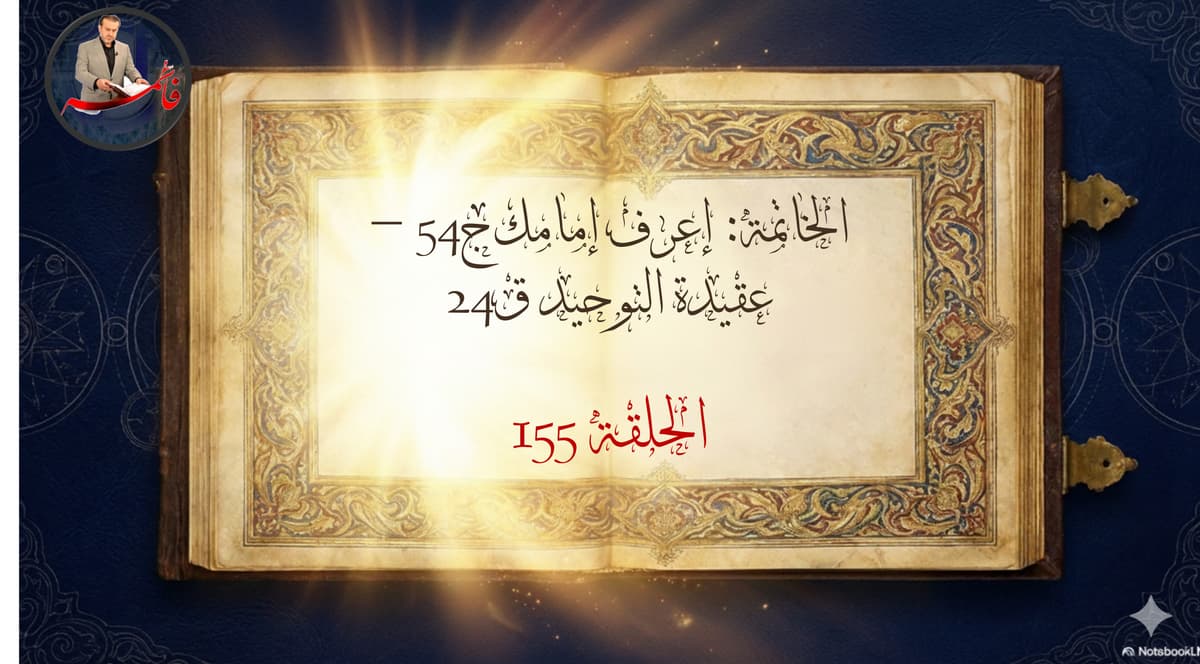 فاطمة
الخاتمة: إعرف إمامك ج54 –
عقيدة التوحيد ق24
الحلقة 155
NotebookL